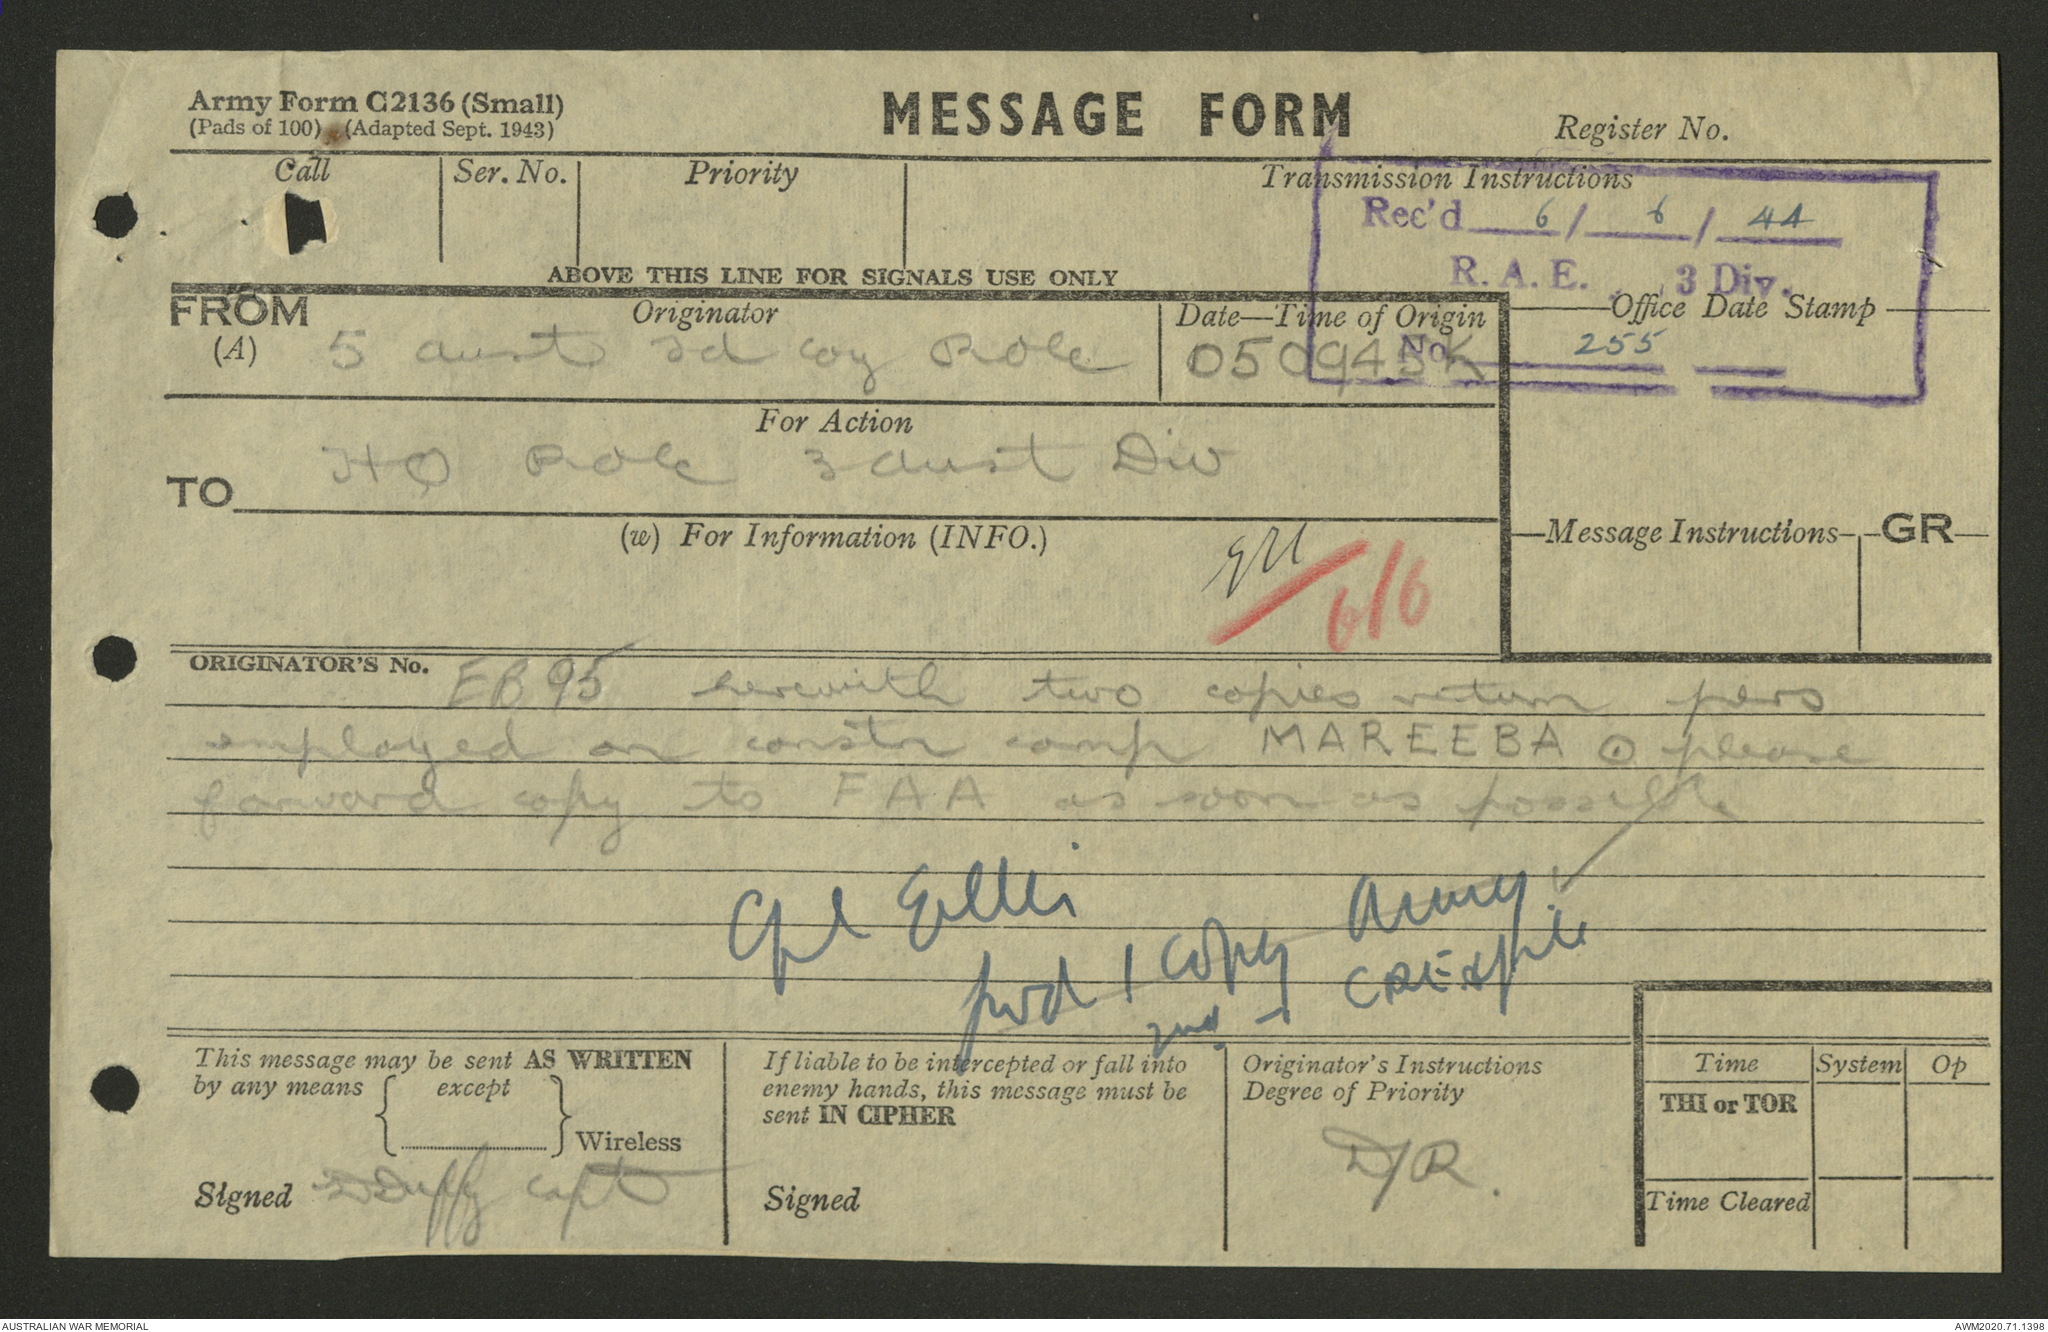 Army Form C2136 (Small)
(Pads of 100) (Adapted Sept. 1943)
MESSAGE FORM
Register No.
Call
Ser. No.
Priority
Transmission Instructions
Rec'd 6 / 6 / 44
R. A. E. 3 Div.
No. 255
ABOVE THIS LINE FOR SIGNALS USE ONLY
FROM
(A)
Originator
5 aust fd coy RAE
Date—Time of Origin
050945K
Office Date Stamp
For Action
TO
HQ RAE 3 aust Div
(w) For Information (INFO.)
6/6
Message Instructions
GR
ORIGINATOR'S No.
EB95 herewith two copies return pers
employed on constn camp MAREEBA ⊙ please
forward copy to FAA as soon as possible
Cpl Gillis
fwd 1 copy Army
2nd - CRE's file
This message may be sent AS WRITTEN
by any means { except
} Wireless
Signed Duffy capt
If liable to be intercepted or fall into
enemy hands, this message must be
sent IN CIPHER
Signed
Originator's Instructions
Degree of Priority
D/R.
Time
System
Op
THI or TOR
Time Cleared
AUSTRALIAN WAR MEMORIAL
AWM2020.71.1398